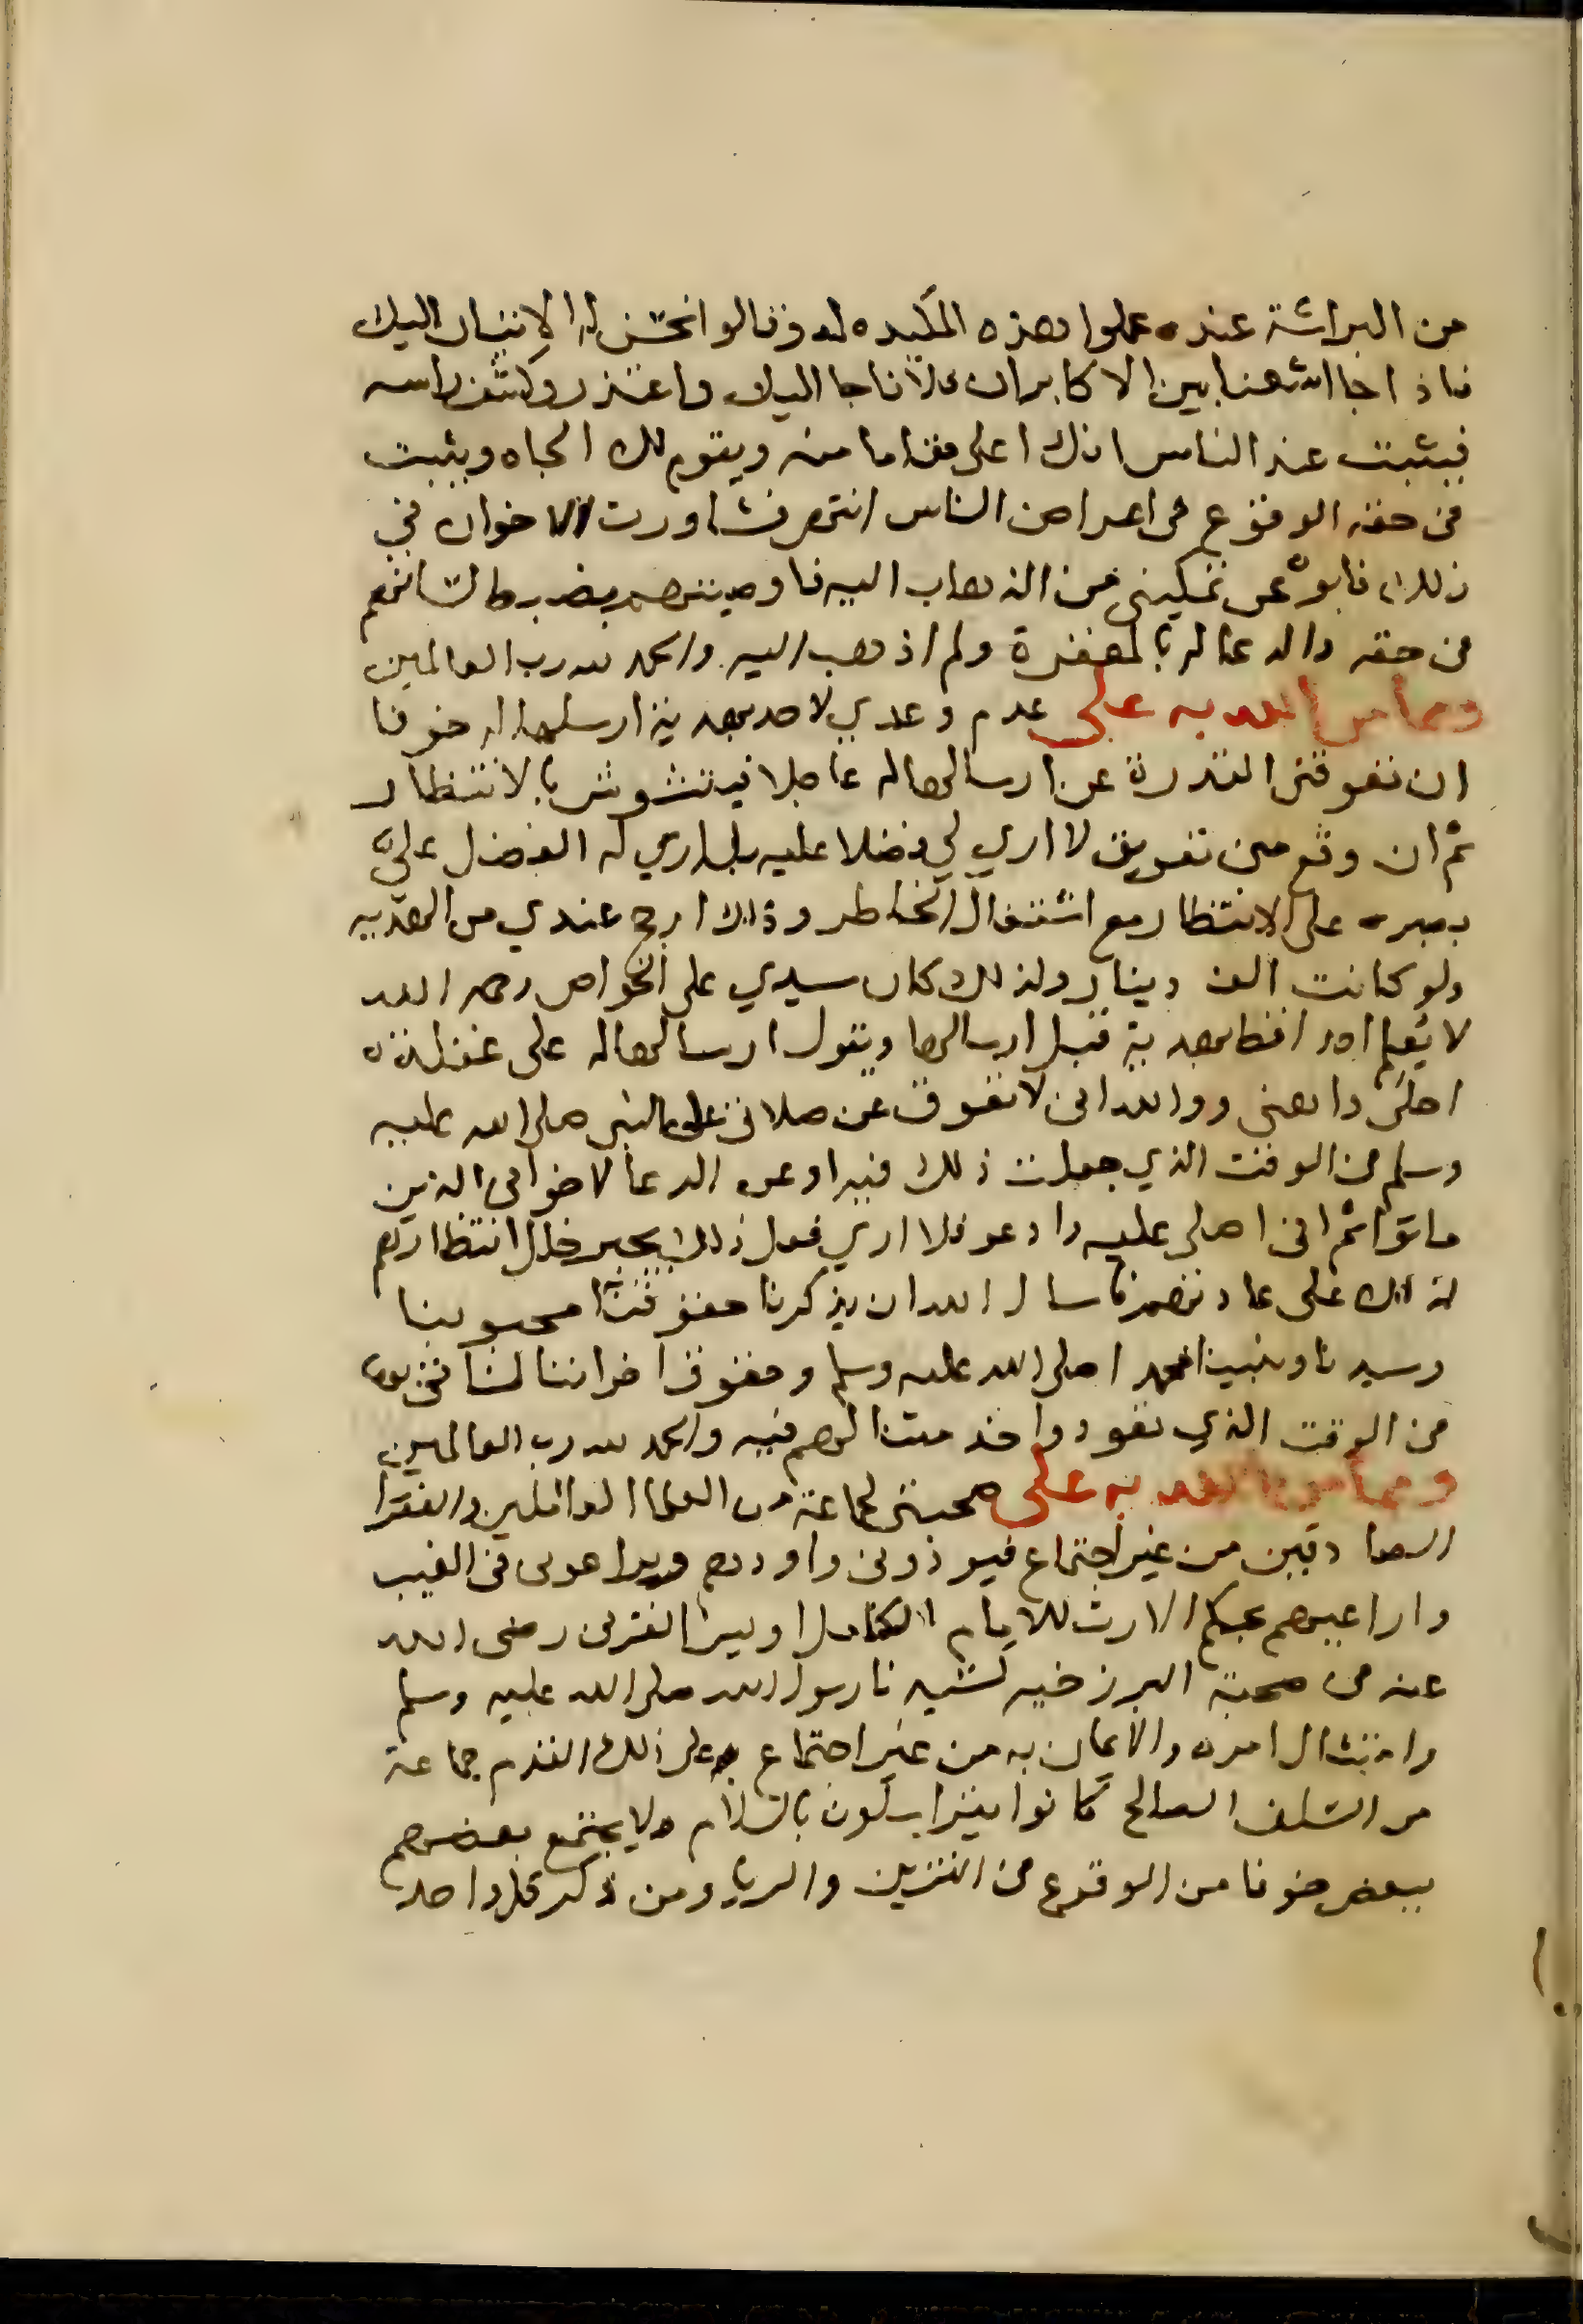 من البراشة عنده عملوا هذه المكيده له وقالوا نحسّن له الاتيان اليك
فاذا جا اشعنا بين الاكابر ان فلانا جا اليك واعتذر وكشف راسه
فيثبت عند الناس انك اعلى مقاما منه ويقوم لك الجاه ويثبت
في حقه الوقوع في اعراض الناس انتهى فشاورت الاخوان في
ذلك فابوا عن تمكيني من الذهاب اليه فاوصيتهم
في حقه والدعا له بالمغفرة ولم اذهب اليه والحمد لله رب العالمين
ومما من الله به على عدم وعدي لاحد بهدية ارسلها له خوفا
ان تعوقني القدرة عن ارسالها له عاجلا فيتشوش بالانتظار
ثم ان وقع مني تعويق لا اري لي فضلا عليه بل اري له الفضل عليّ
بصبره على الانتظار مع اشتغال الخاطر وذلك ارجح عندي من الهديه
ولو كانت الف دينار ولذلك كان سيدي على الخواص رحمه الله
لا يُعلم احدا قط بهدية قبل ارسالها ويقول ارسالها له على غفلة
احلى واهنى ووالله اني لاتعوق عن صلاتي على النبى صلى الله عليه
وسلم في الوقت الذي جعلت ذلك فيه او عن الدعا لاخواني الذين
ماتوا ثم اني اصلى عليه وادعو فلا اري فعل ذلك يجبر خلل انتظارهم
لذلك على عادتهم فاسال الله ان يذكرنا حقوق محبوبنا
وسيدنا ونبينا محمد صلى الله عليه وسلم وحقوق اخواننا
في الوقت الذي تعودوا خدمتنا لهم فيه والحمد لله رب العالمين
ومما من الله به على صحبتى لجماعة من العلما العاملين والفقرا
الصادقين من غير اجتماع فيوذوني واوددهم ويراعوني في الغيب
واراعيهم بحكم الارث للامام الكامل اويس القرني رضى الله
عنه في صحبته البرزخيه لسيدنا رسول الله صلى الله عليه وسلم
وامتثال امره والايمان به من غير اجتماع وعلى ذلك القدم جماعة
من السّلف الصالح كانوا يتراسلون بالسلام ولا يجتمع بعضهم
ببعض خوفا من الوقوع في التزين والريا ومن ذكر كل واحد